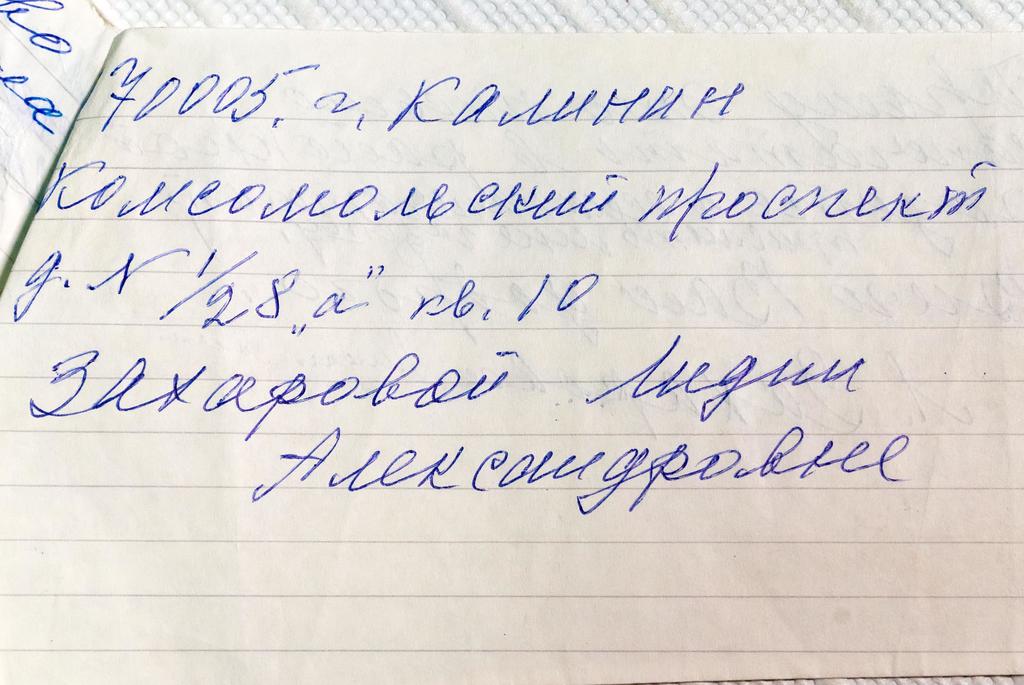 ко
на
70005. г. Калинин
Комсомольский проспект
д. N 1/28 „а" кв. 10
Захаровой Лидии
Александровне